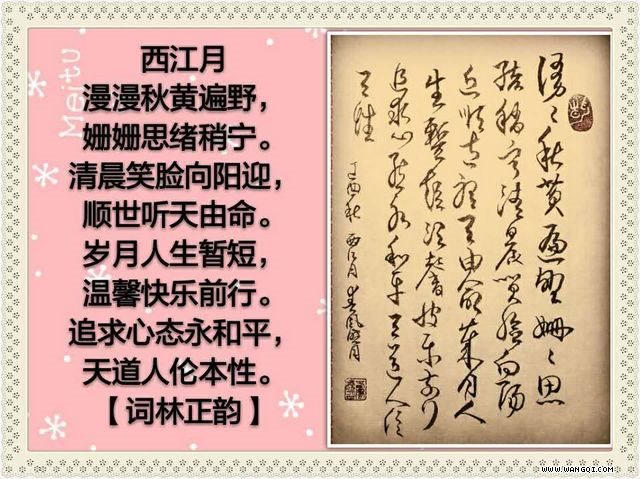 西江月
漫漫秋黄遍野，
姗姗思绪稍宁。
清晨笑脸向阳迎，
顺世听天由命。
岁月人生暂短，
温馨快乐前行。
追求心态永和平，
天道人伦本性。
【词林正韵】
Meitu
漫漫秋黄遍野姗姗思
绪稍宁清晨笑脸向阳
天由命岁月人
生暂短温馨快乐前行
追求心态永和平天道人伦
丁酉秋 西江月
WWW.WANGQI.COM